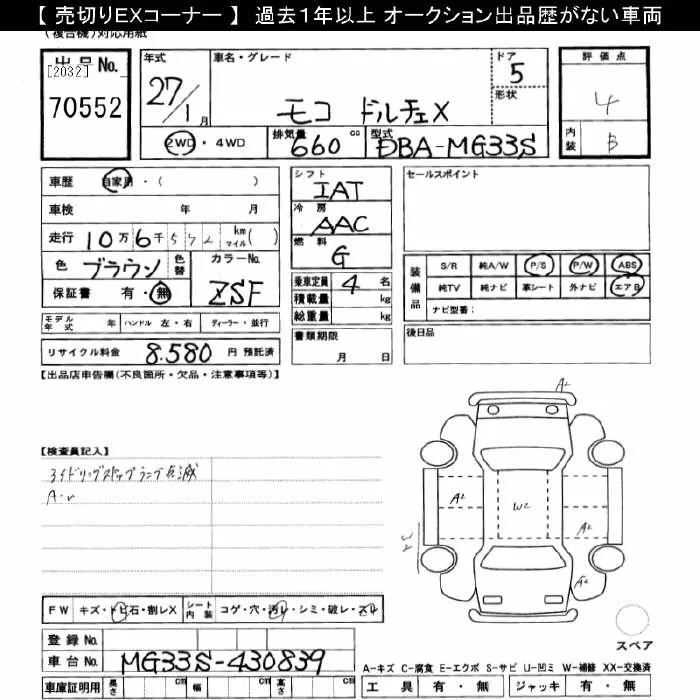 【 売切りEXコーナー 】 過去1年以上 オークション出品歴がない車両
(複合機)対応用紙
出品No.
[2032]
70552
年式
27/1月
車名・グレード
モコ ドルチェX
ドア
5
形状
評価点
4
内装
B
2WD・4WD
排気量
660 cc
型式
DBA-MG33S
車歴 自家用・( )
車検 年 月
走行 10万6千572 km マイル( )
色 ブラウン 色替
カラーNo.
ZSF
保証書 有・無
シフト
IAT
冷房
AAC
燃料
G
乗車定員 4 名
積載量 kg
総重量 kg
書類期限
月 日
セールスポイント
装備品
S/R 純A/W P/S P/W ABS
純TV 純ナビ 革シート 外ナビ エアB
ナビ型番:
後日品
モデル年式 年 ハンドル 左・右 ディーラー・並行
リサイクル料金 8.580 円 預託済
【出品店申告欄(不良箇所・欠品・注意事項等)】
【検査員記入】
アイドリングストップランプ点滅
A2
A2
W2
A2
W2
A2
FW キズ・トビ石・割レX シート内装 コゲ・穴・汚レ・シミ・破レ・スレ
登録No.
車台No. MG33S-430839
車庫証明用 長さ cm 幅 cm 高さ cm
スペア
A-キズ C-腐食 E-エクボ S-サビ U-凹ミ W-補修 XX-交換済
工具 有・無 ジャッキ 有・無